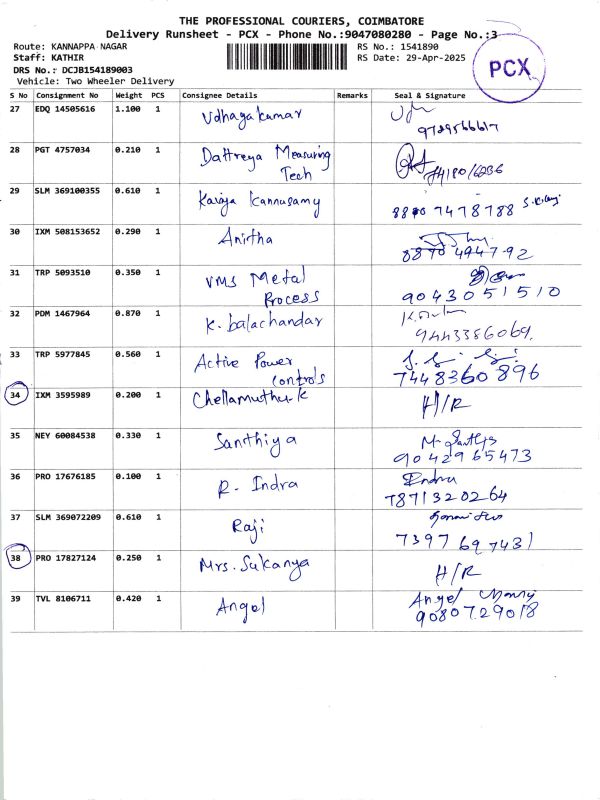 THE PROFESSIONAL COURIERS, COIMBATORE
Delivery Runsheet - PCX - Phone No.:9047080280 - Page No.:3
Route: KANNAPPA NAGAR RS No.: 1541890
Staff: KATHIR RS Date: 29-Apr-2025
DRS No.: DCJB154189003
Vehicle: Two Wheeler Delivery
PCX
S No Consignment No Weight PCS Consignee Details Remarks Seal & Signature
27 EDQ 14505616 1.100 1 Udhayakumar
9789566617
28 PGT 4757034 0.210 1 Dattreya Measuring
Tech
29 SLM 369100355 0.610 1 Kavya Kannusamy 7478788
30 IXM 508153652 0.290 1 Anitha
4947 92
31 TRP 5093510 0.350 1 VMS Metal
Process 9043051510
32 PDM 1467964 0.870 1 K. balachandar
9443386069.
33 TRP 5977845 0.560 1 Active Power
Controls 7448360896
34 IXM 3595989 0.200 1 Chellamuthu.K H/R
35 NEY 60084538 0.330 1 Santhiya
9042965473
36 PRO 17676185 0.100 1 R. Indra Indra
7871320264
37 SLM 369072209 0.610 1 Raji
7397697431
38 PRO 17827124 0.250 1 Mrs. Sukanya H/R
39 TVL 8106711 0.420 1 Angel Angel
9080729018